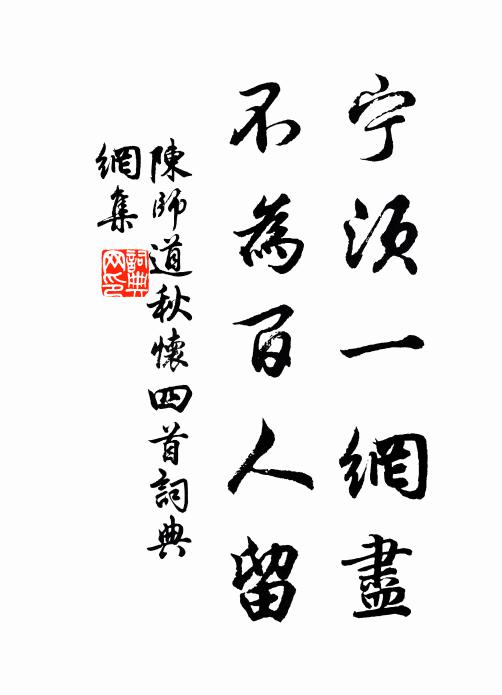 宁须一網盡
不為百人留
陳師道秋懷四首詞典
網集
詞典网印